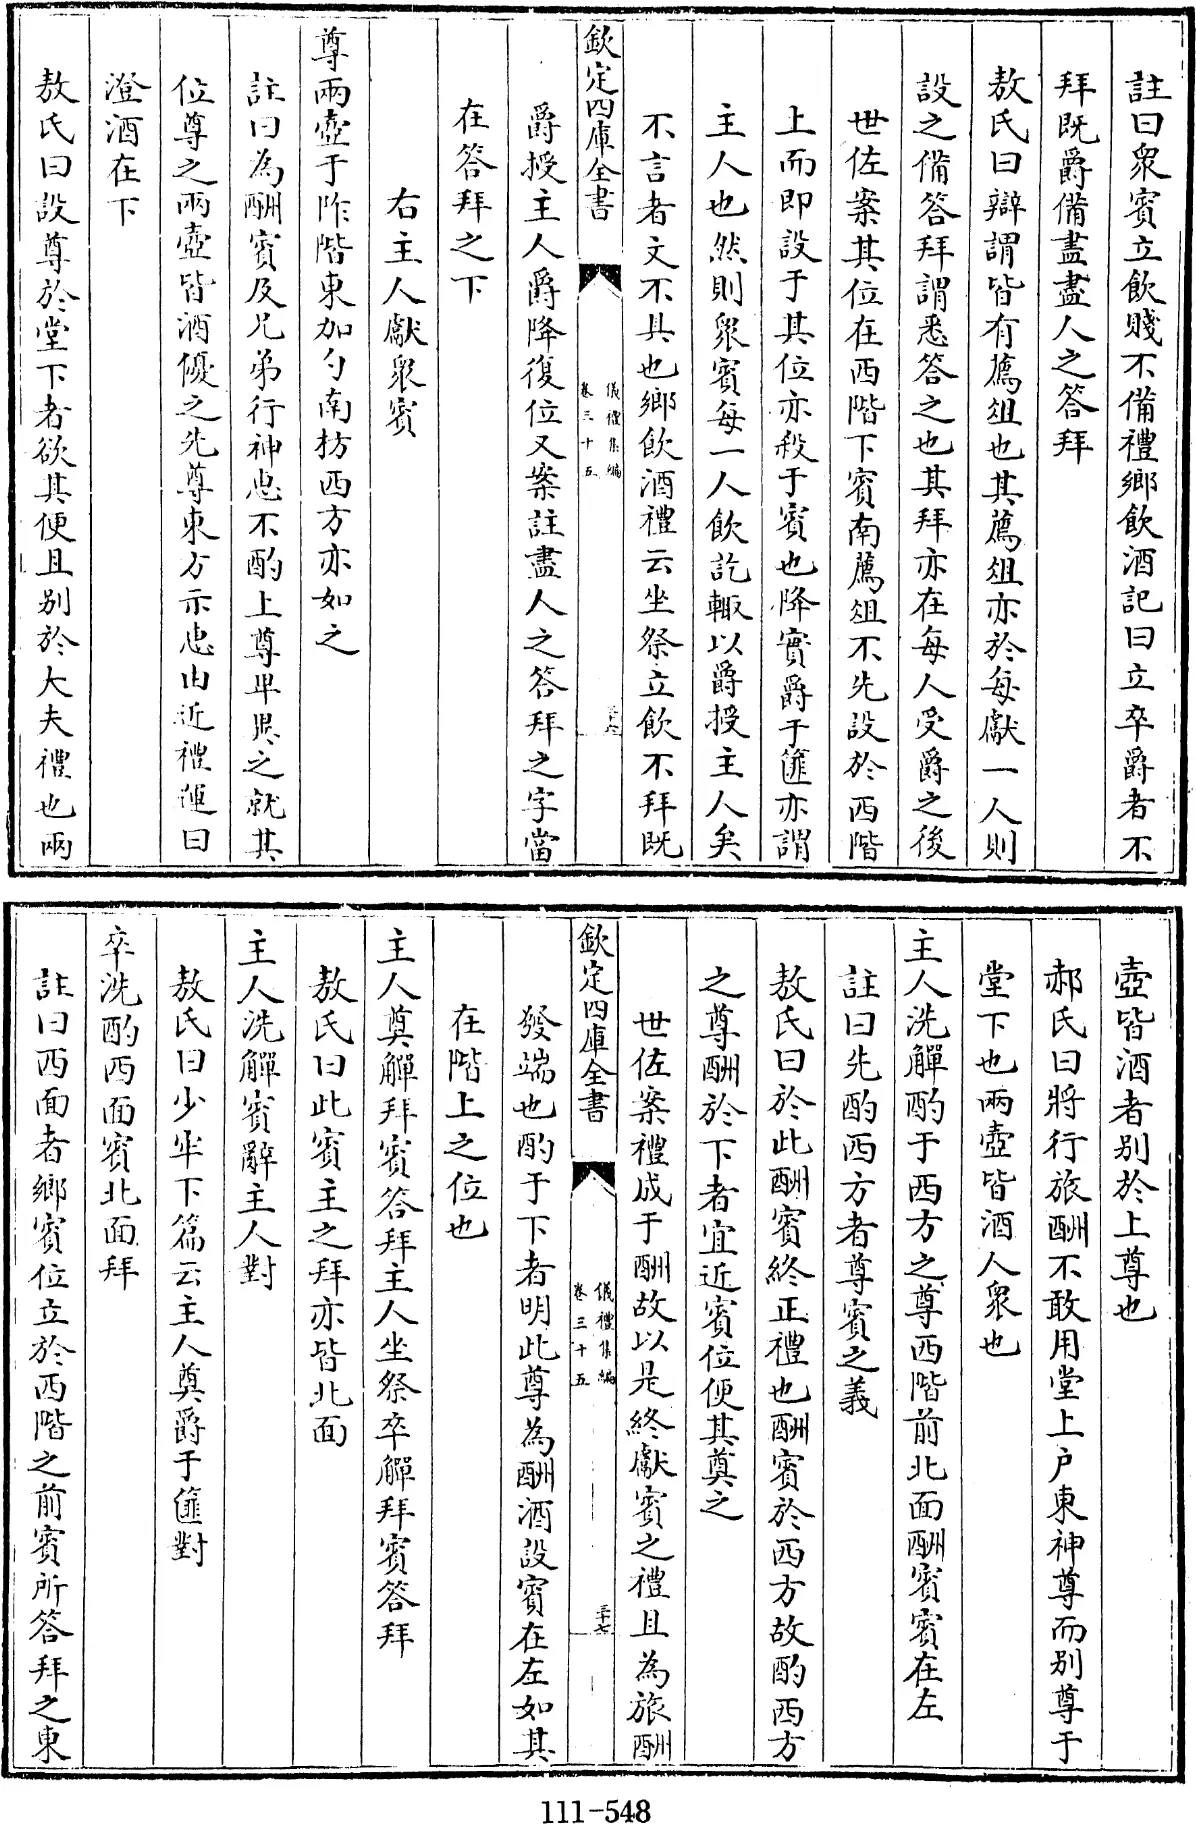 註曰衆賓立飲賤不備禮鄉飲酒記曰立卒爵者不
拜既爵備盡盡人之答拜
敖氏曰辯謂皆有薦俎也其薦俎亦於每獻一人則
設之備答拜謂悉答之也其拜亦在每人受爵之後
世佐案其位在西階下賓南薦俎不先設於西階
上而即設于其位亦殺于賓也降實爵于篚亦謂
主人也然則衆賓每一人飲訖輙以爵授主人矣
不言者文不具也鄉飲酒禮云坐祭立飲不拜既
欽定四庫全書
儀禮集編
卷三十五
爵授主人爵降復位又案註盡人之答拜之字當
在答拜之下
右主人獻衆賓
尊兩壺于阼階東加勺南枋西方亦如之
註曰為酬賓及兄弟行神惠不酌上尊卑異之就其
位尊之兩壺皆酒優之先尊東方示惠由近禮運曰
澄酒在下
敖氏曰設尊於堂下者欲其便且别於大夫禮也兩
壺皆酒者别於上尊也
郝氏曰將行旅酬不敢用堂上户東神尊而别尊于
堂下也兩壺皆酒人衆也
主人洗觶酌于西方之尊西階前北面酬賓賓在左
註曰先酌西方者尊賓之義
敖氏曰於此酬賓終正禮也酬賓於西方故酌西方
之尊酬於下者宜近賓位便其奠之
世佐案禮成于酬故以是終獻賓之禮且為旅酬
欽定四庫全書
儀禮集編
卷三十五
三十七
發端也酌于下者明此尊為酬酒設賓在左如其
在階上之位也
主人奠觶拜賓答拜主人坐祭卒觶拜賓答拜
敖氏曰此賓主之拜亦皆北面
主人洗觶賓辭主人對
敖氏曰少牢下篇云主人奠爵于篚對
卒洗酌西面賓北面拜
註曰西面者鄉賓位立於西階之前賓所答拜之東
111-548